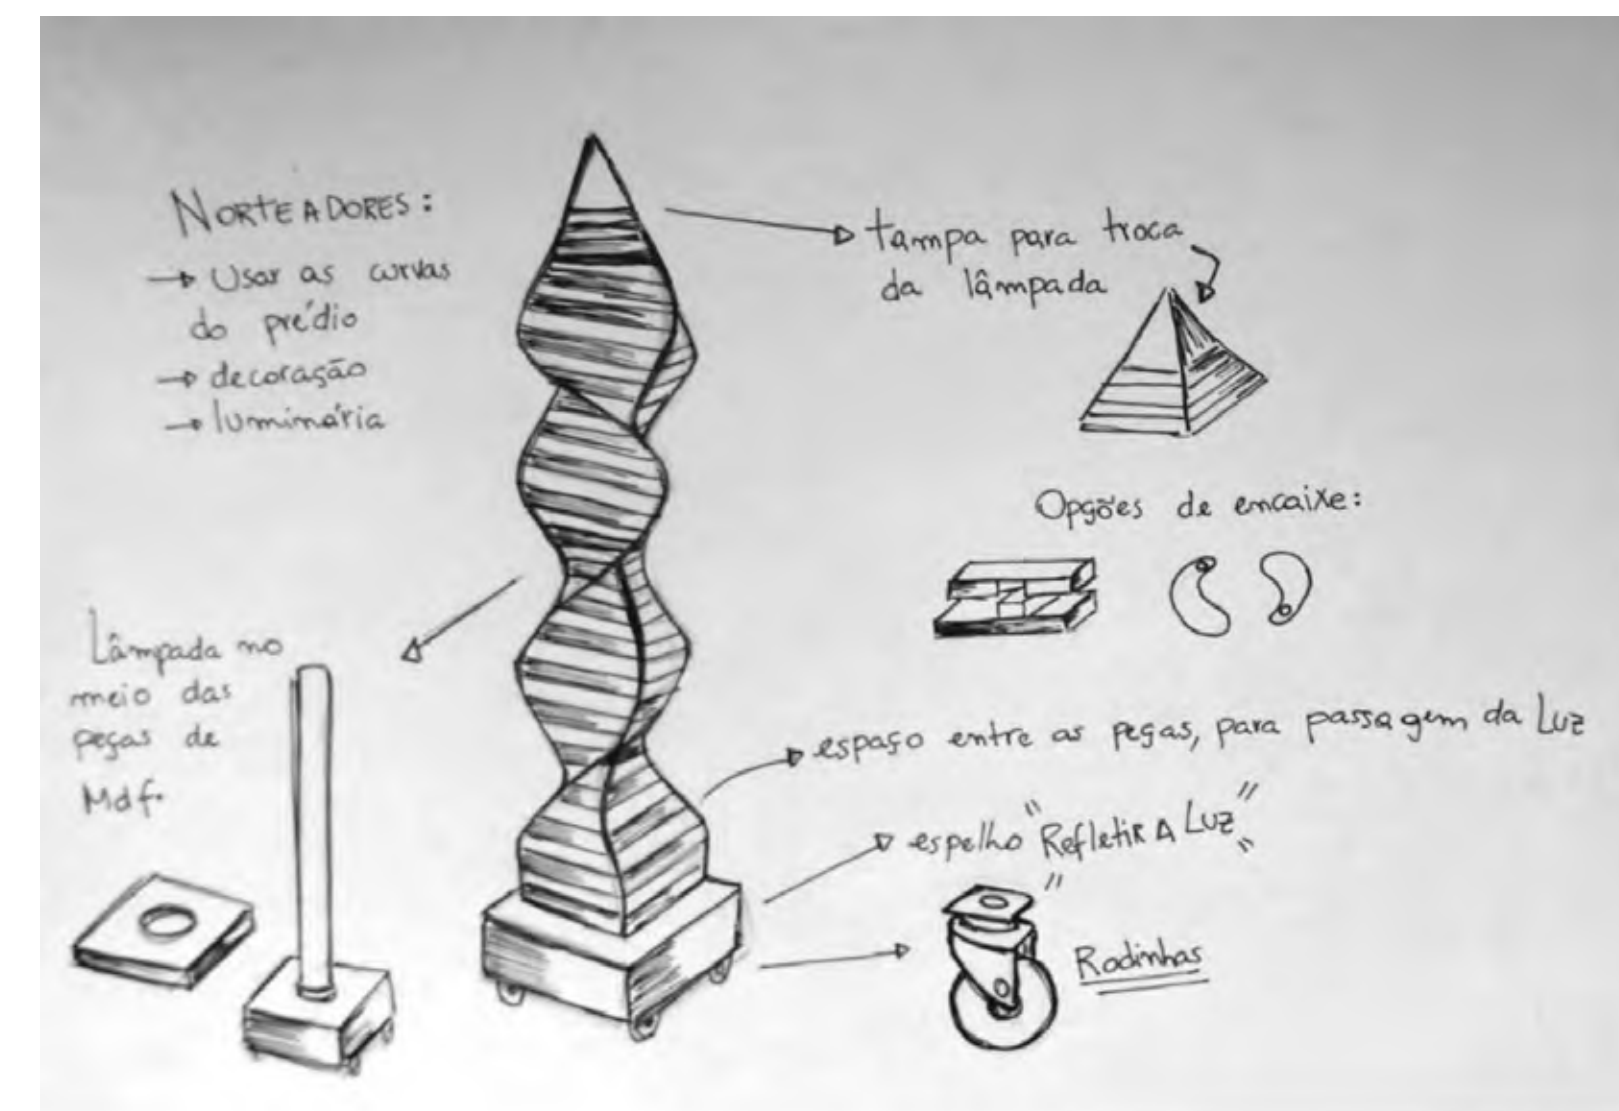 NORTEADORES:
→ Usar as curvas
do prédio
→ decoração
→ luminária
tampa para troca
da lâmpada
Opções de encaixe:
Lâmpada no
meio das
peças de
Mdf.
espaço entre as peças, para passagem da Luz
espelho "RefletiR A Luz"
Rodinhas